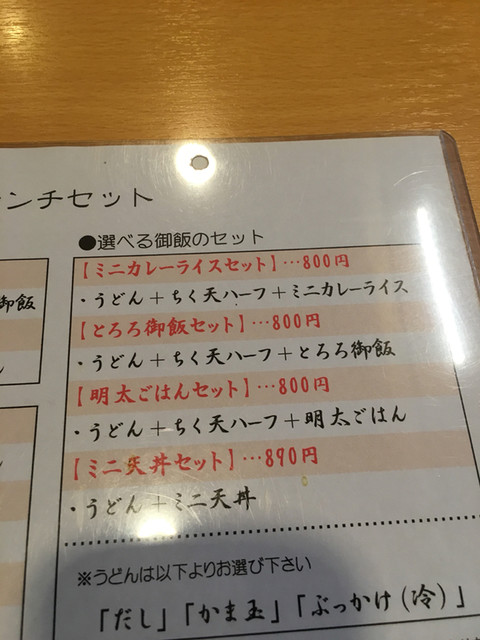 ンチセット
●選べる御飯のセット
【ミニカレーライスセット】…800円
・うどん＋ちく天ハーフ＋ミニカレーライス
【とろろ御飯セット】…800円
・うどん＋ちく天ハーフ＋とろろ御飯
【明太ごはんセット】…800円
・うどん＋ちく天ハーフ＋明太ごはん
【ミニ天丼セット】…890円
・うどん＋ミニ天丼
※うどんは以下よりお選び下さい
「だし」「かま玉」「ぶっかけ(冷)」
御飯